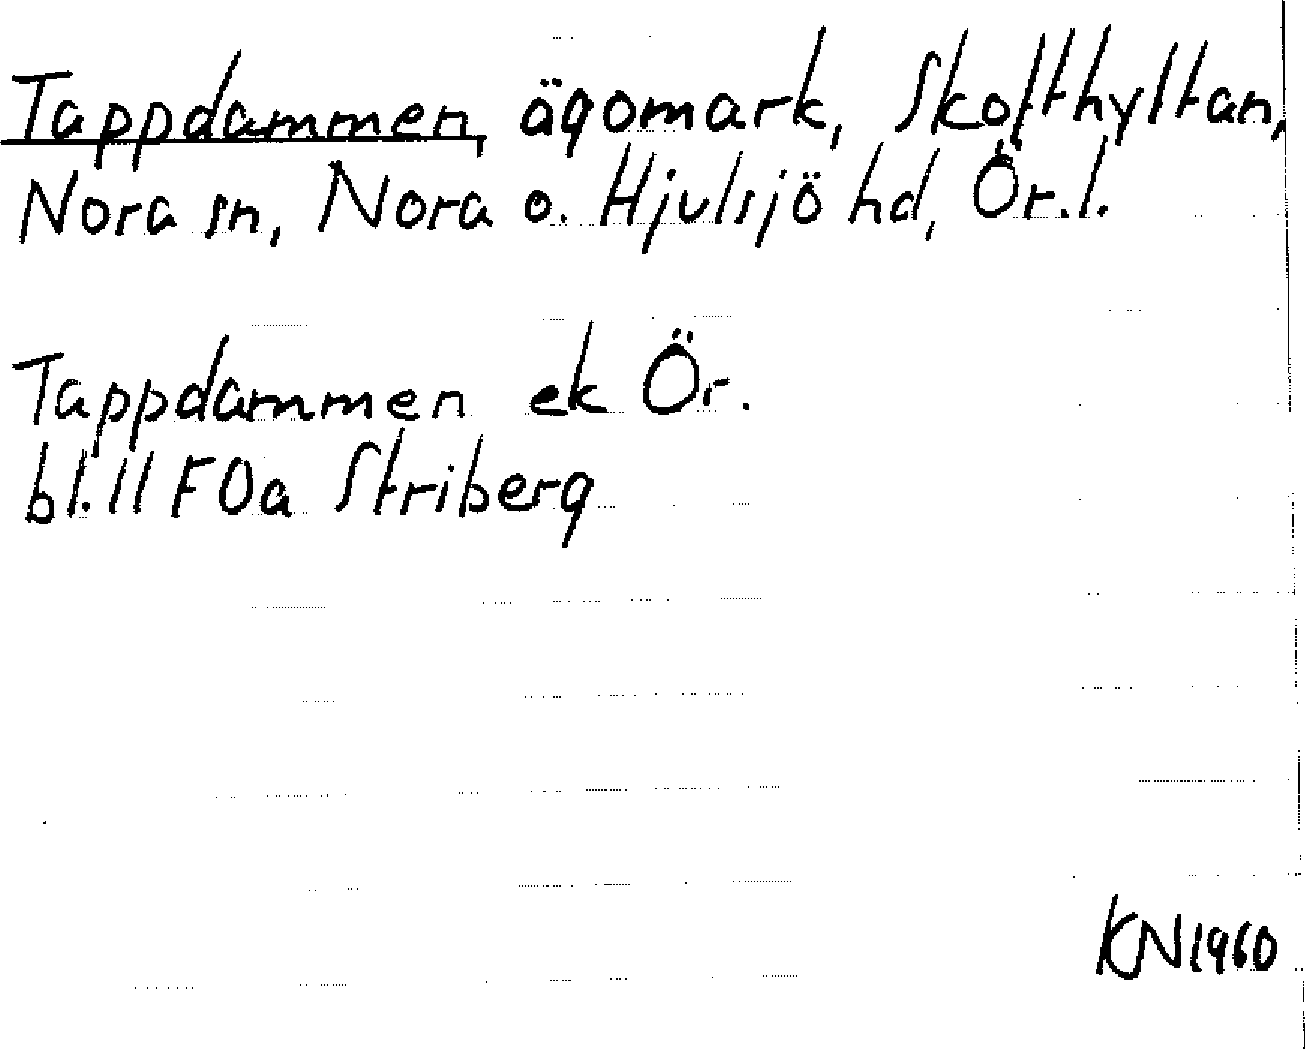 Tappdammen, ägomark, Skofthyltan,
Nora sn, Nora o. Hjulsjö hd, Ör.l.
Tappdammen ek Ör.
bl. 11 F 0a Striberg
KN 1960